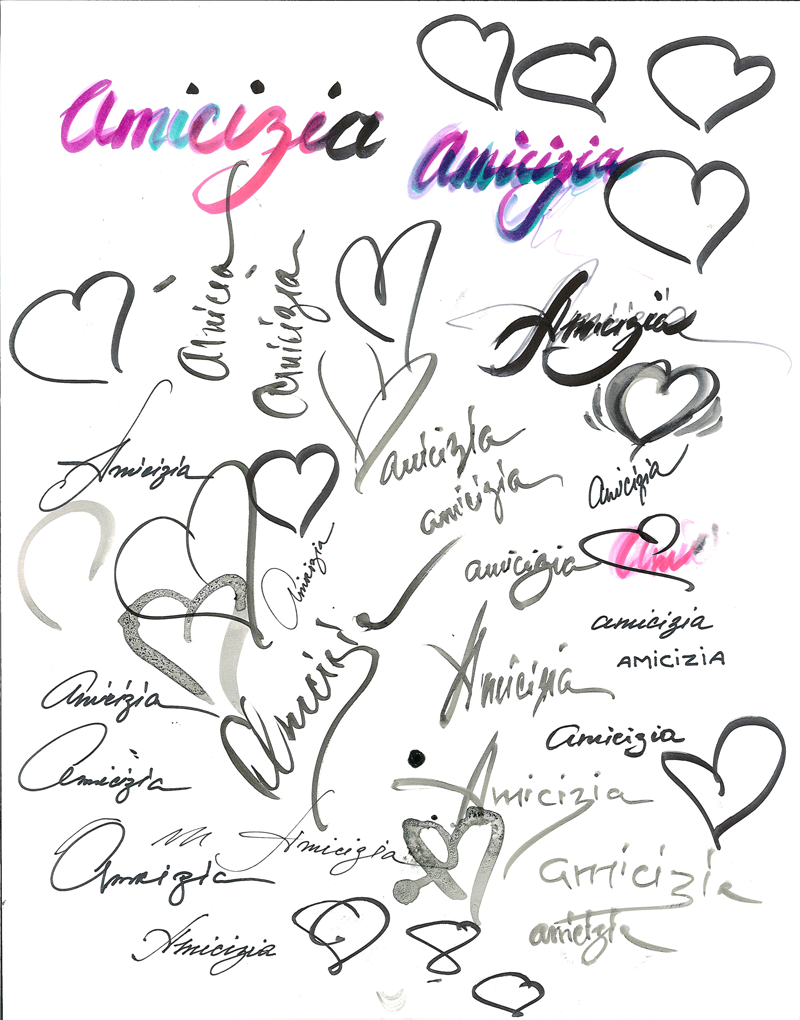 amicizia
Amicizia
amicizia
amicizia
Amicizia
Amicizia
amicizia
amicizia
Amicizia
amicizia
Amicizia
ami
amicizia
AMICIZIA
Amicizia
Amicizia
Amicizia
Amicizia
Amicizia
Amicizia
Amicizia
amicizia
Amicizia
amicizia
Amicizia